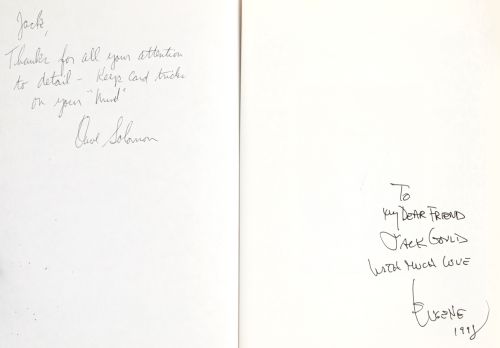 Jack,
Thanks for all your attention
to detail - Keep card tricks
on your "Mind"
Dave Solomon
To
My Dear Friend
Jack Gould
With Much Love
Eugene
1998